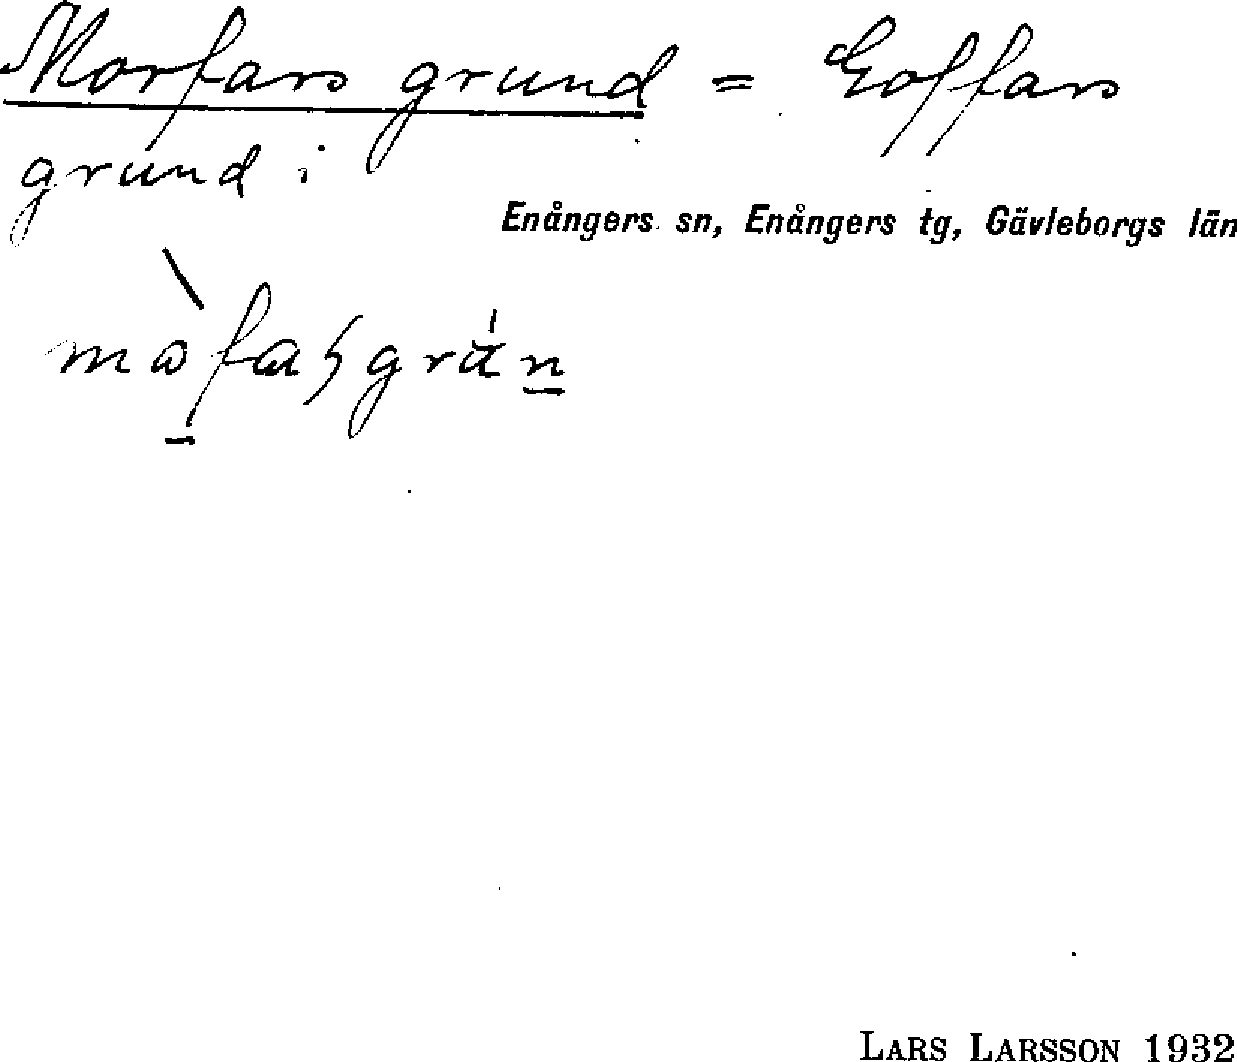 Morfars grund = Goffars
grund i
Enångers sn, Enångers tg, Gävleborgs län
LARS LARSSON 1932